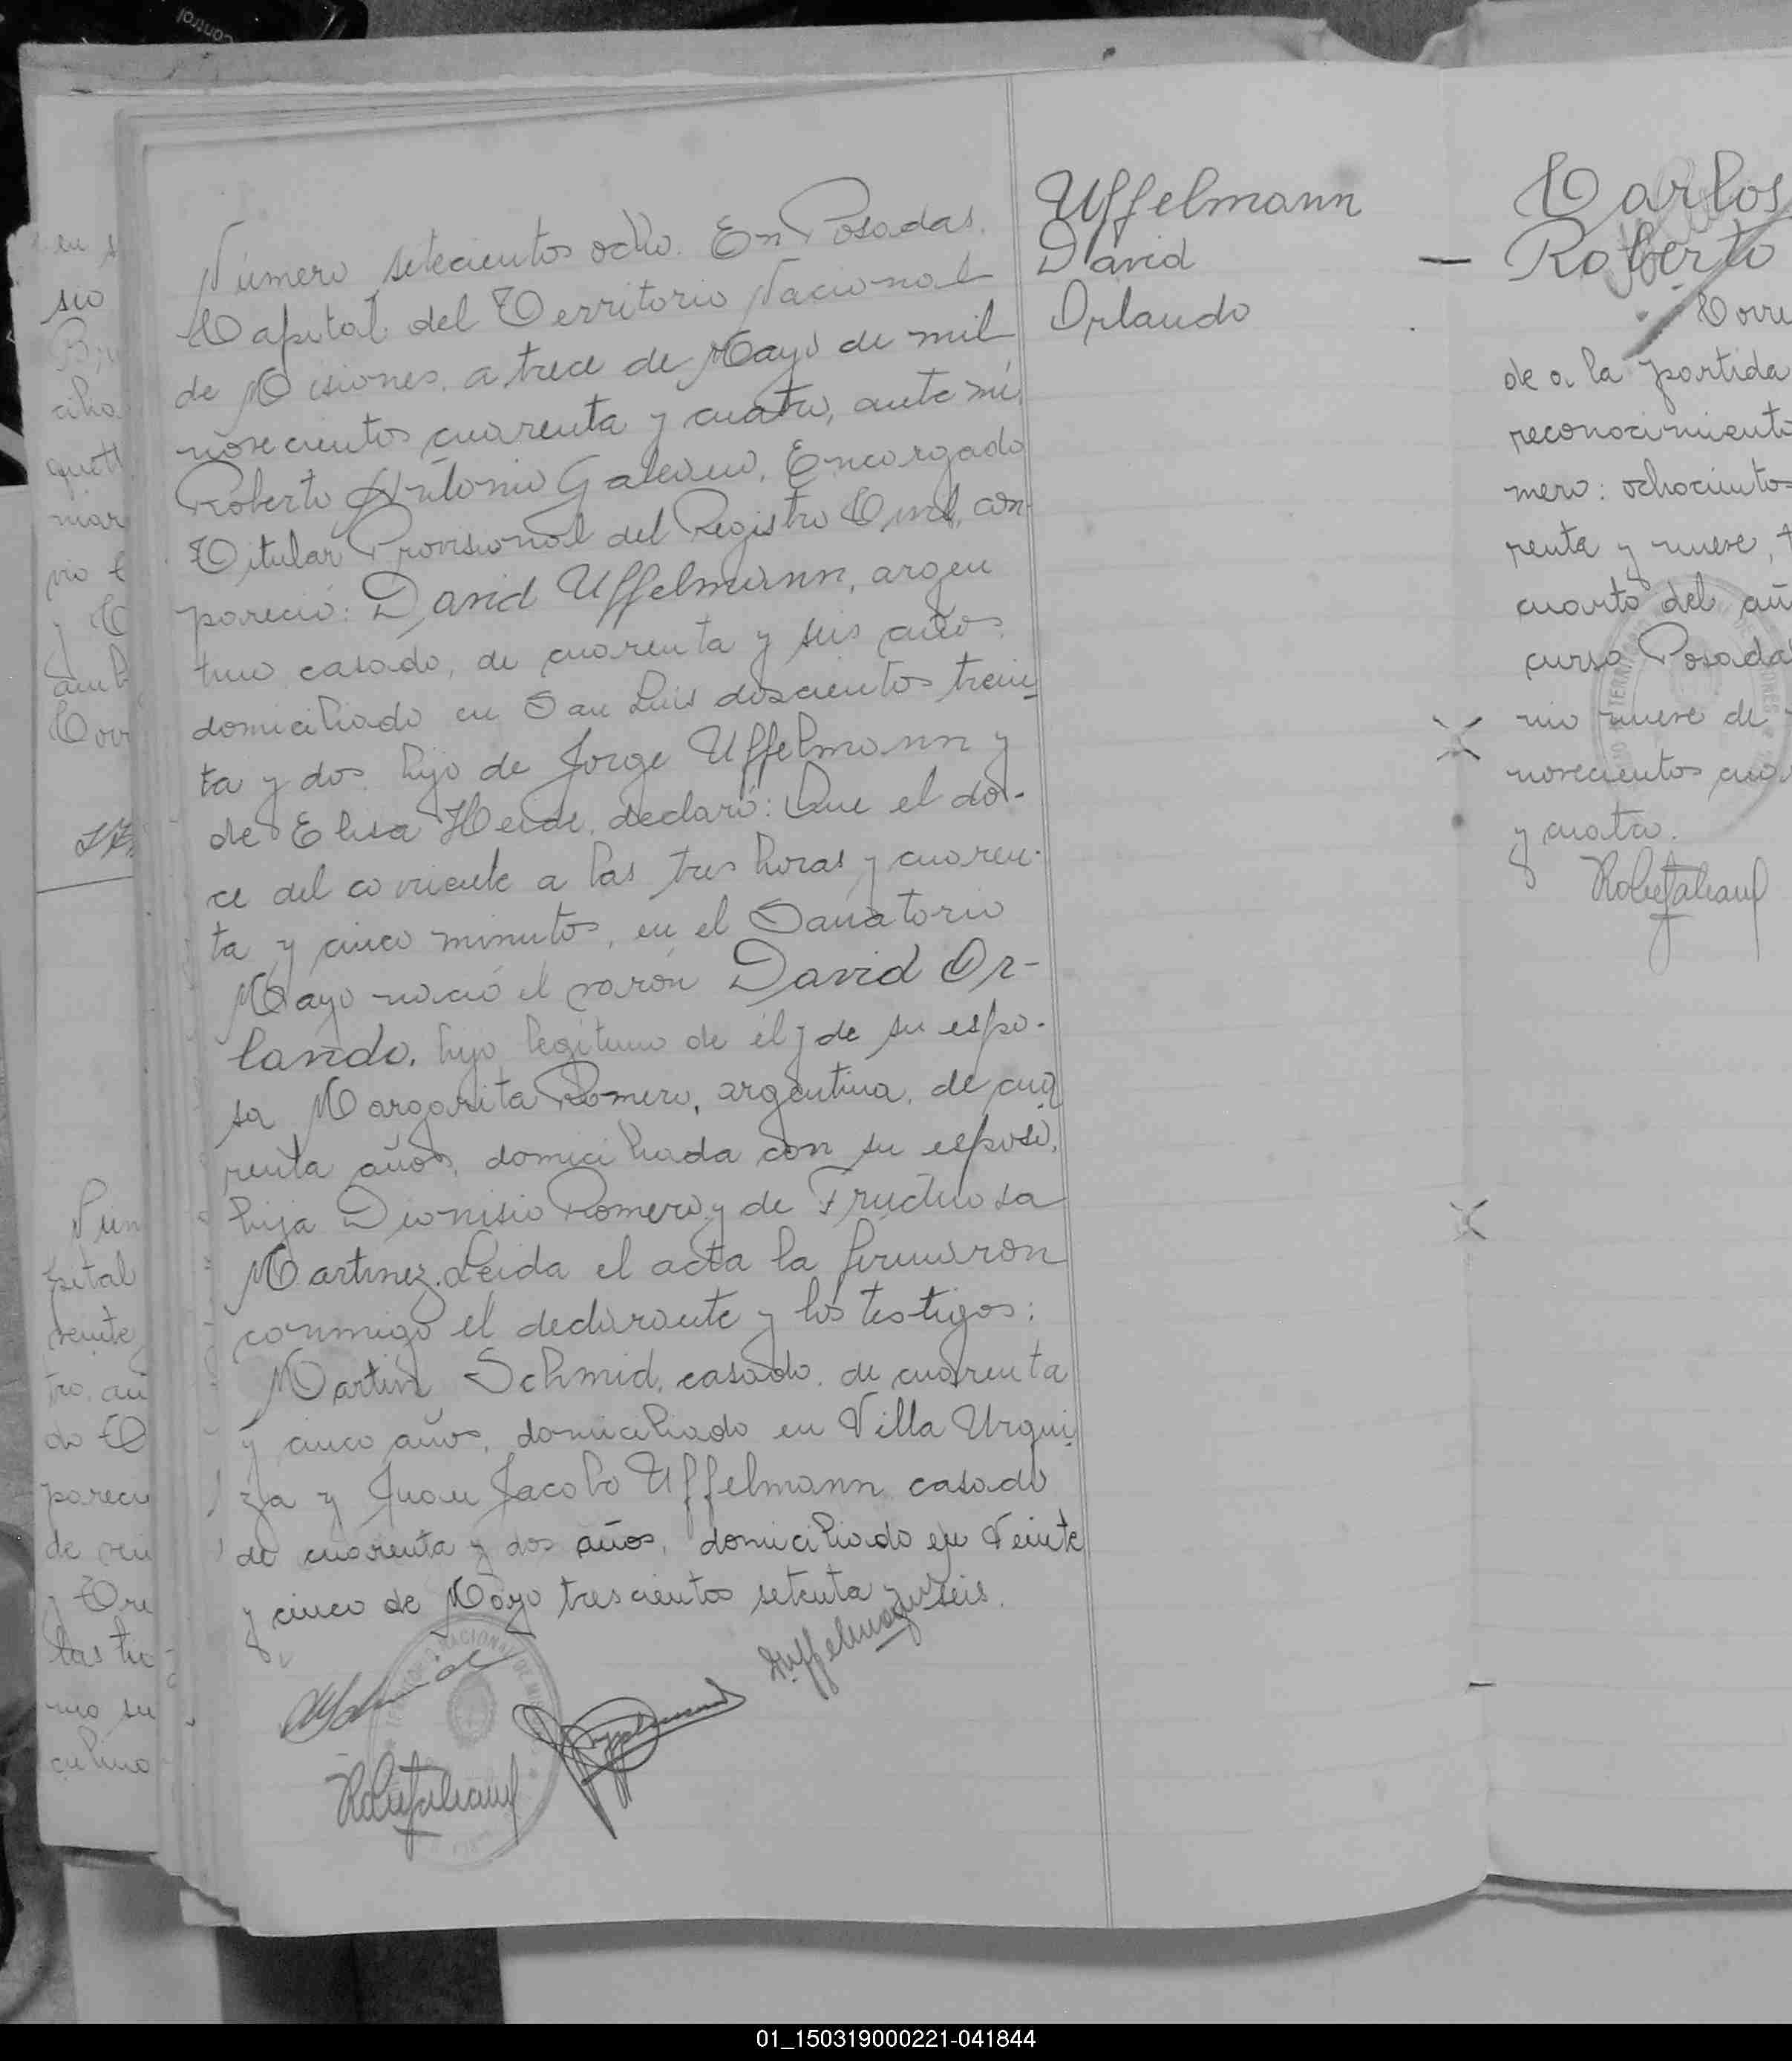 Control
Número setecientos ocho. En Posadas,
Capital del Territorio Nacional
de Misiones, a trece de Mayo de mil
novecientos cuarenta y cuatro, ante mí,
Roberto Antonio Galeano, Encargado
Titular Provisional del Registro Civil, com
pareció: David Uffelmann, argen
tino casado, de cuarenta y seis años,
domiciliado en San Luis doscientos trein
ta y dos, hijo de Jorge Uffelmann y
de Elisa Heide, declaró: Que el do-
ce del corriente a las tres horas y cuaren-
ta y cinco minutos, en el Sanatorio
Mayo nació el varón David Or-
lando, hijo legítimo de él y de su espo-
sa Margarita Romero, argentina, de cua
renta años, domiciliada con su esposo,
hija Dionisio Romero y de Fructuosa
Martinez. Leida el acta la firmaron
conmigo el declarante y los testigos:
Martín Schmid, casado, de cuarenta
y cinco años, domiciliado en Villa Urqui
za y Juan Jacobo Uffelmann casado
de cuarenta y dos años, domiciliado en Veinte
y cinco de Mayo trescientos setenta y seis.
Uffelmann
David
Orlando
Carlos
Roberto
Corre
de a la partida
reconocimiento
mero: ochocientos
renta y nueve, t
cuarto del añ
curso Posadas
nio nueve de
novecientos cua
y cuatro.
sio
ciha
mar
Corr
Núm
pital
veinte
tro, an
do
pareci
de vei
las tre
mo su
culino
01_150319000221-041844